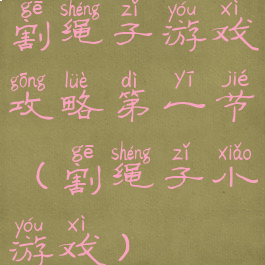 gē shéng zǐ yóu xì
割绳子游戏
gōng lüè dì yī jié
攻略第一节
gē shéng zǐ xiǎo
(割绳子小
yóu xì
游戏)